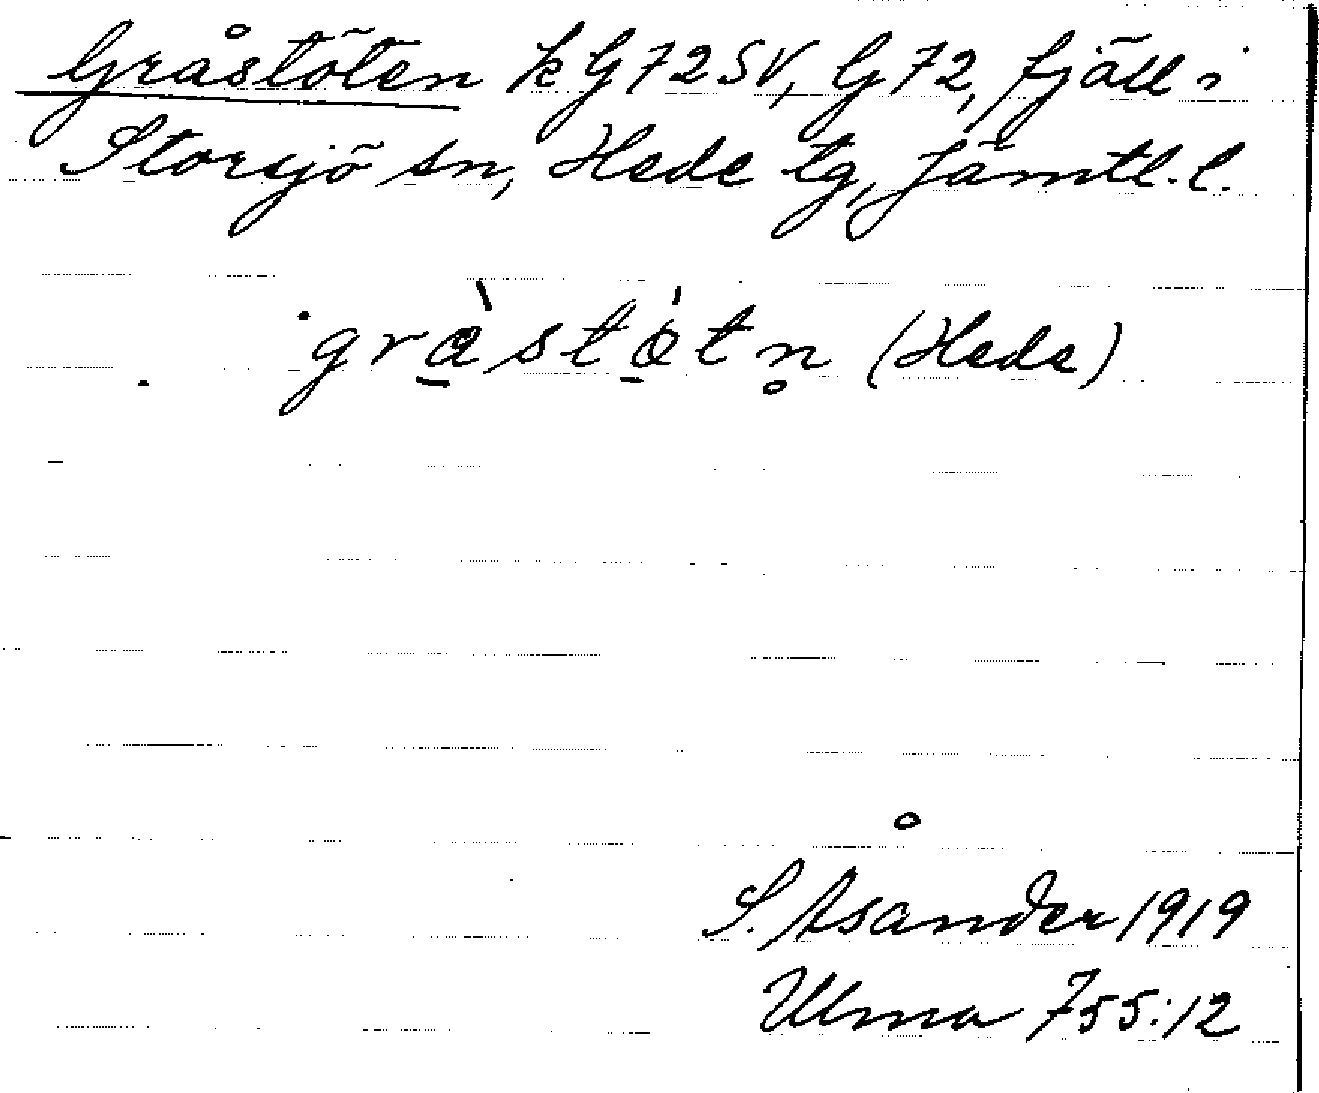 Gråstöten kG72SV, G72, fjäll i
Storsjö sn, Hede tg, Jämtl. l.
gràstö́tn̥ (Hede)
S. Åsander 1919
Ulma 755:12